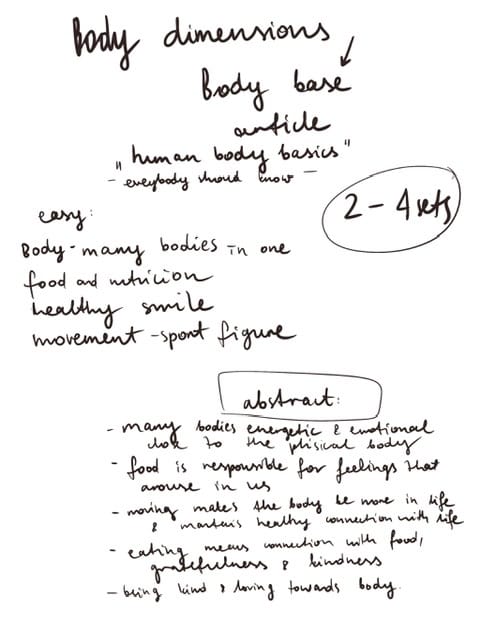 Body dimensions
Body base
article
"human body basics"
- everybody should know -
2 - 4 sets
easy:
Body - many bodies in one
food and nutricion
healthy smile
movement - sport figure
abstract:
- many bodies energetic & emotional
to the phisical body
- food is responsible for feelings that
arouse in us
- moving makes the body be more in life
& healthy connection with life
- eating means connection with food,
gratefulness & kindness
- being kind & loving towards body.